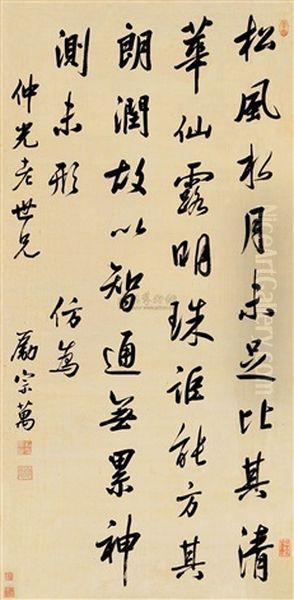 松風水月未足比其清
華仙露明珠詎能方其
朗潤故以智通無累神
測未形 仿為
仲光老世兄
勵宗萬
NiceArtGallery.com